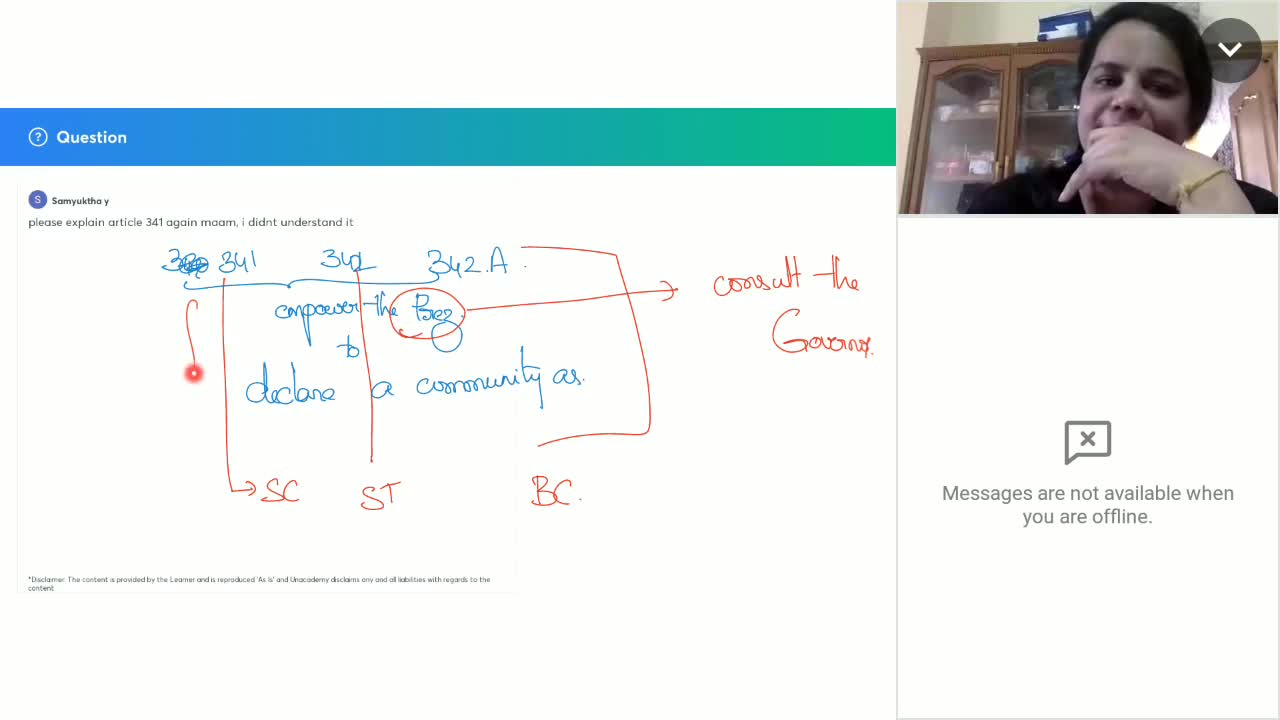 Question
S Samyuktha y
please explain article 341 again maam, i didnt understand it
341 342 342.A
empower the Prez.
to
declare a community as.
consult the
Governor.
SC ST BC.
*Disclaimer: The content is provided by the Learner and is reproduced 'As Is' and Unacademy disclaims any and all liabilities with regards to the
content
Messages are not available when
you are offline.